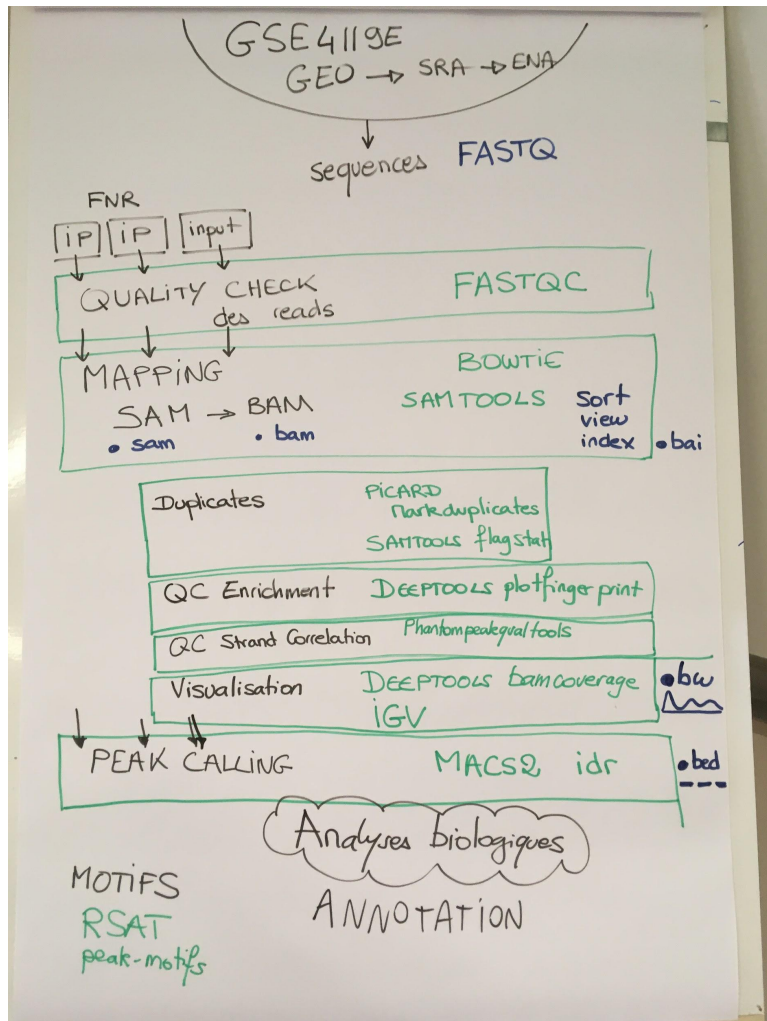 GSE4119E
GEO → SRA → ENA
sequences FASTQ
FNR
iP iP input
QUALITY CHECK FASTQC
des reads
MAPPING BOWTIE
SAM → BAM SAMTOOLS sort
view
• sam • bam index • bai
Duplicates PICARD
Markduplicates
SAMTOOLS flagstat
QC Enrichment DEEPTOOLS plotfinger print
QC Strand Correlation Phantompeakqualtools
Visualisation DEEPTOOLS bamcoverage • bw
iGV
PEAK CALLING MACS2 idr • bed
Analyses biologiques
MOTIFS ANNOTATION
RSAT
peak-motifs